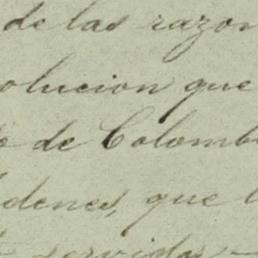 de las razon
olucion que
de Colomb
rdenes, que l
servidas